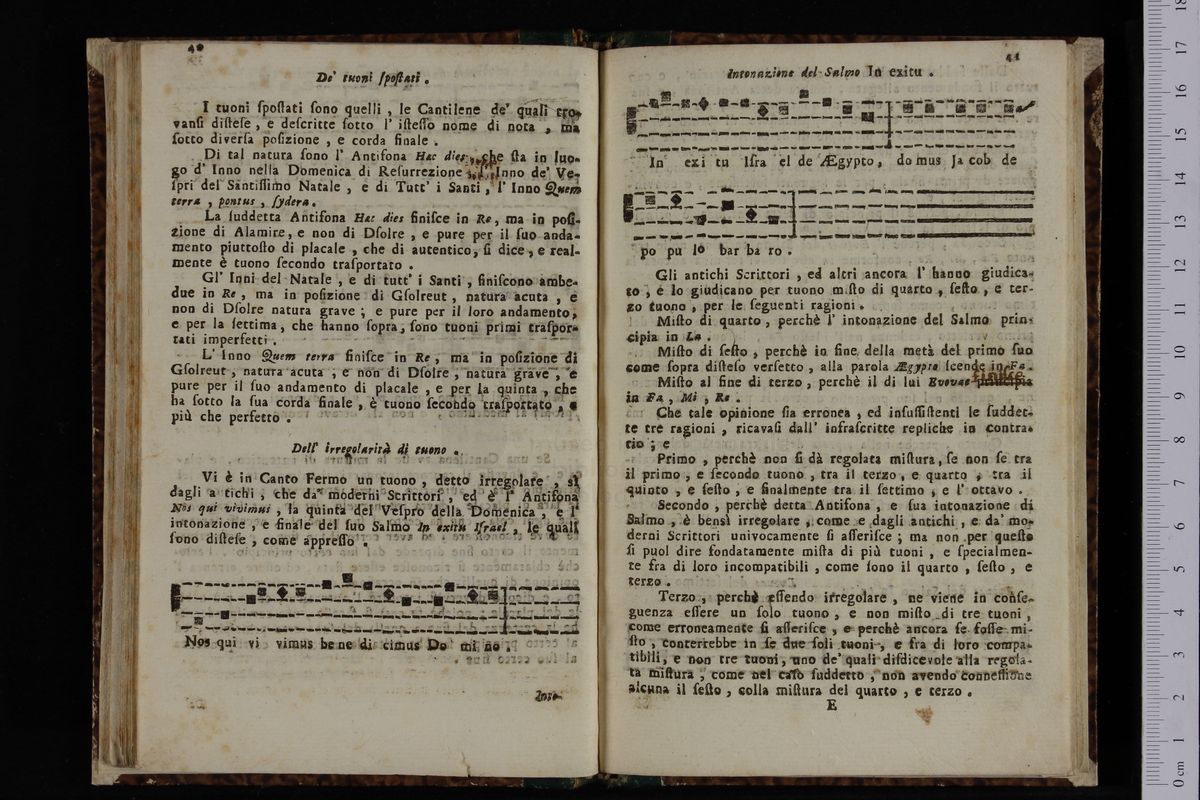 40
De' tuoni spostati .
I tuoni spostati sono quelli , le Cantilene de' quali tro-
vansi distese , e descritte sotto l' istesso nome di nota , ma
sotto diversa posizione , e corda finale .
Di tal natura sono l' Antifona Hæc dies , che sta in luo-
go d' Inno nella Domenica di Resurrezione , l' Inno de' Ve-
spri del Santissimo Natale , e di Tutt' i Santi , l' Inno Quem
terra , pontus , sydera .
La suddetta Antifona Hæc dies finisce in Re , ma in posi-
zione di Alamire , e non di Dsolre , e pure per il suo anda-
mento piuttosto di placale , che di autentico, si dice , e real-
mente è tuono secondo trasportato .
Gl' Inni del Natale , e di tutt' i Santi , finiscono ambe-
due in Re , ma in posizione di Gsolreut , natura acuta , e
non di Dsolre natura grave ; e pure per il loro andamento,
e per la settima, che hanno sopra, sono tuoni primi traspor-
tati imperfetti .
L' Inno Quem terra finisce in Re , ma in posizione di
Gsolreut , natura acuta , e non di Dsolre , natura grave , e
pure per il suo andamento di placale , e per la quinta , che
ha sotto la sua corda finale , è tuono secondo trasportato , e
più che perfetto .
Dell' irregolarità di tuono .
Vi è in Canto Fermo un tuono , detto irregolare , sì
dagli a tichi , che da' moderni Scrittori , ed è l' Antifona
Nos qui vivimus , la quinta del Vespro della Domenica , e l'
intonazione , e finale del suo Salmo In exitu Israel , le quali
sono distese , come appresso .
Nos qui vi vimus be ne di cimus Do mi no .
Into-
41
Intonazione del Salmo In exitu .
In exi tu Isra el de Ægypto , do mus Ja cob de
po pu lo bar ba ro .
Gli antichi Scrittori , ed altri ancora l' hanno giudica-
to , e lo giudicano per tuono misto di quarto , sesto , e ter-
zo tuono , per le seguenti ragioni .
Misto di quarto , perchè l' intonazione del Salmo prin-
cipia in La .
Misto di sesto , perchè in fine della metà del primo suo
come sopra disteso versetto , alla parola Ægypto scende in Fa .
Misto al fine di terzo , perchè il di lui Evovae finisce
in Fa , Mi , Re .
Che tale opinione sia erronea , ed insussistenti le suddet-
te tre ragioni , ricavasi dall' infrascritte repliche in contra-
rio ; e
Primo , perchè non si dà regolata mistura, se non se tra
il primo , e secondo tuono , tra il terzo , e quarto , tra il
quinto , e sesto , e finalmente tra il settimo , e l' ottavo .
Secondo , perchè detta Antifona , e sua intonazione di
Salmo , è bensì irregolare , come e dagli antichi , e da' mo-
derni Scrittori univocamente si asserisce ; ma non per questo
si può dire fondatamente mista di più tuoni , e specialmen-
te fra di loro incompatibili , come sono il quarto , sesto , e
terzo .
Terzo , perchè essendo irregolare , ne viene in conse-
guenza essere un solo tuono , e non misto di tre tuoni ,
come erroneamente si asserisce , e perchè ancora se fosse mi-
sto , conterrebbe in se due soli tuoni , e fra di loro compa-
tibili, e non tre tuoni, uno de' quali disdicevole alla regola-
ta mistura , come nel caso suddetto , non avendo connessione
alcuna il sesto , colla mistura del quarto , e terzo .
E
0 cm 1 2 3 4 5 6 7 8 9 10 11 12 13 14 15 16 17 18